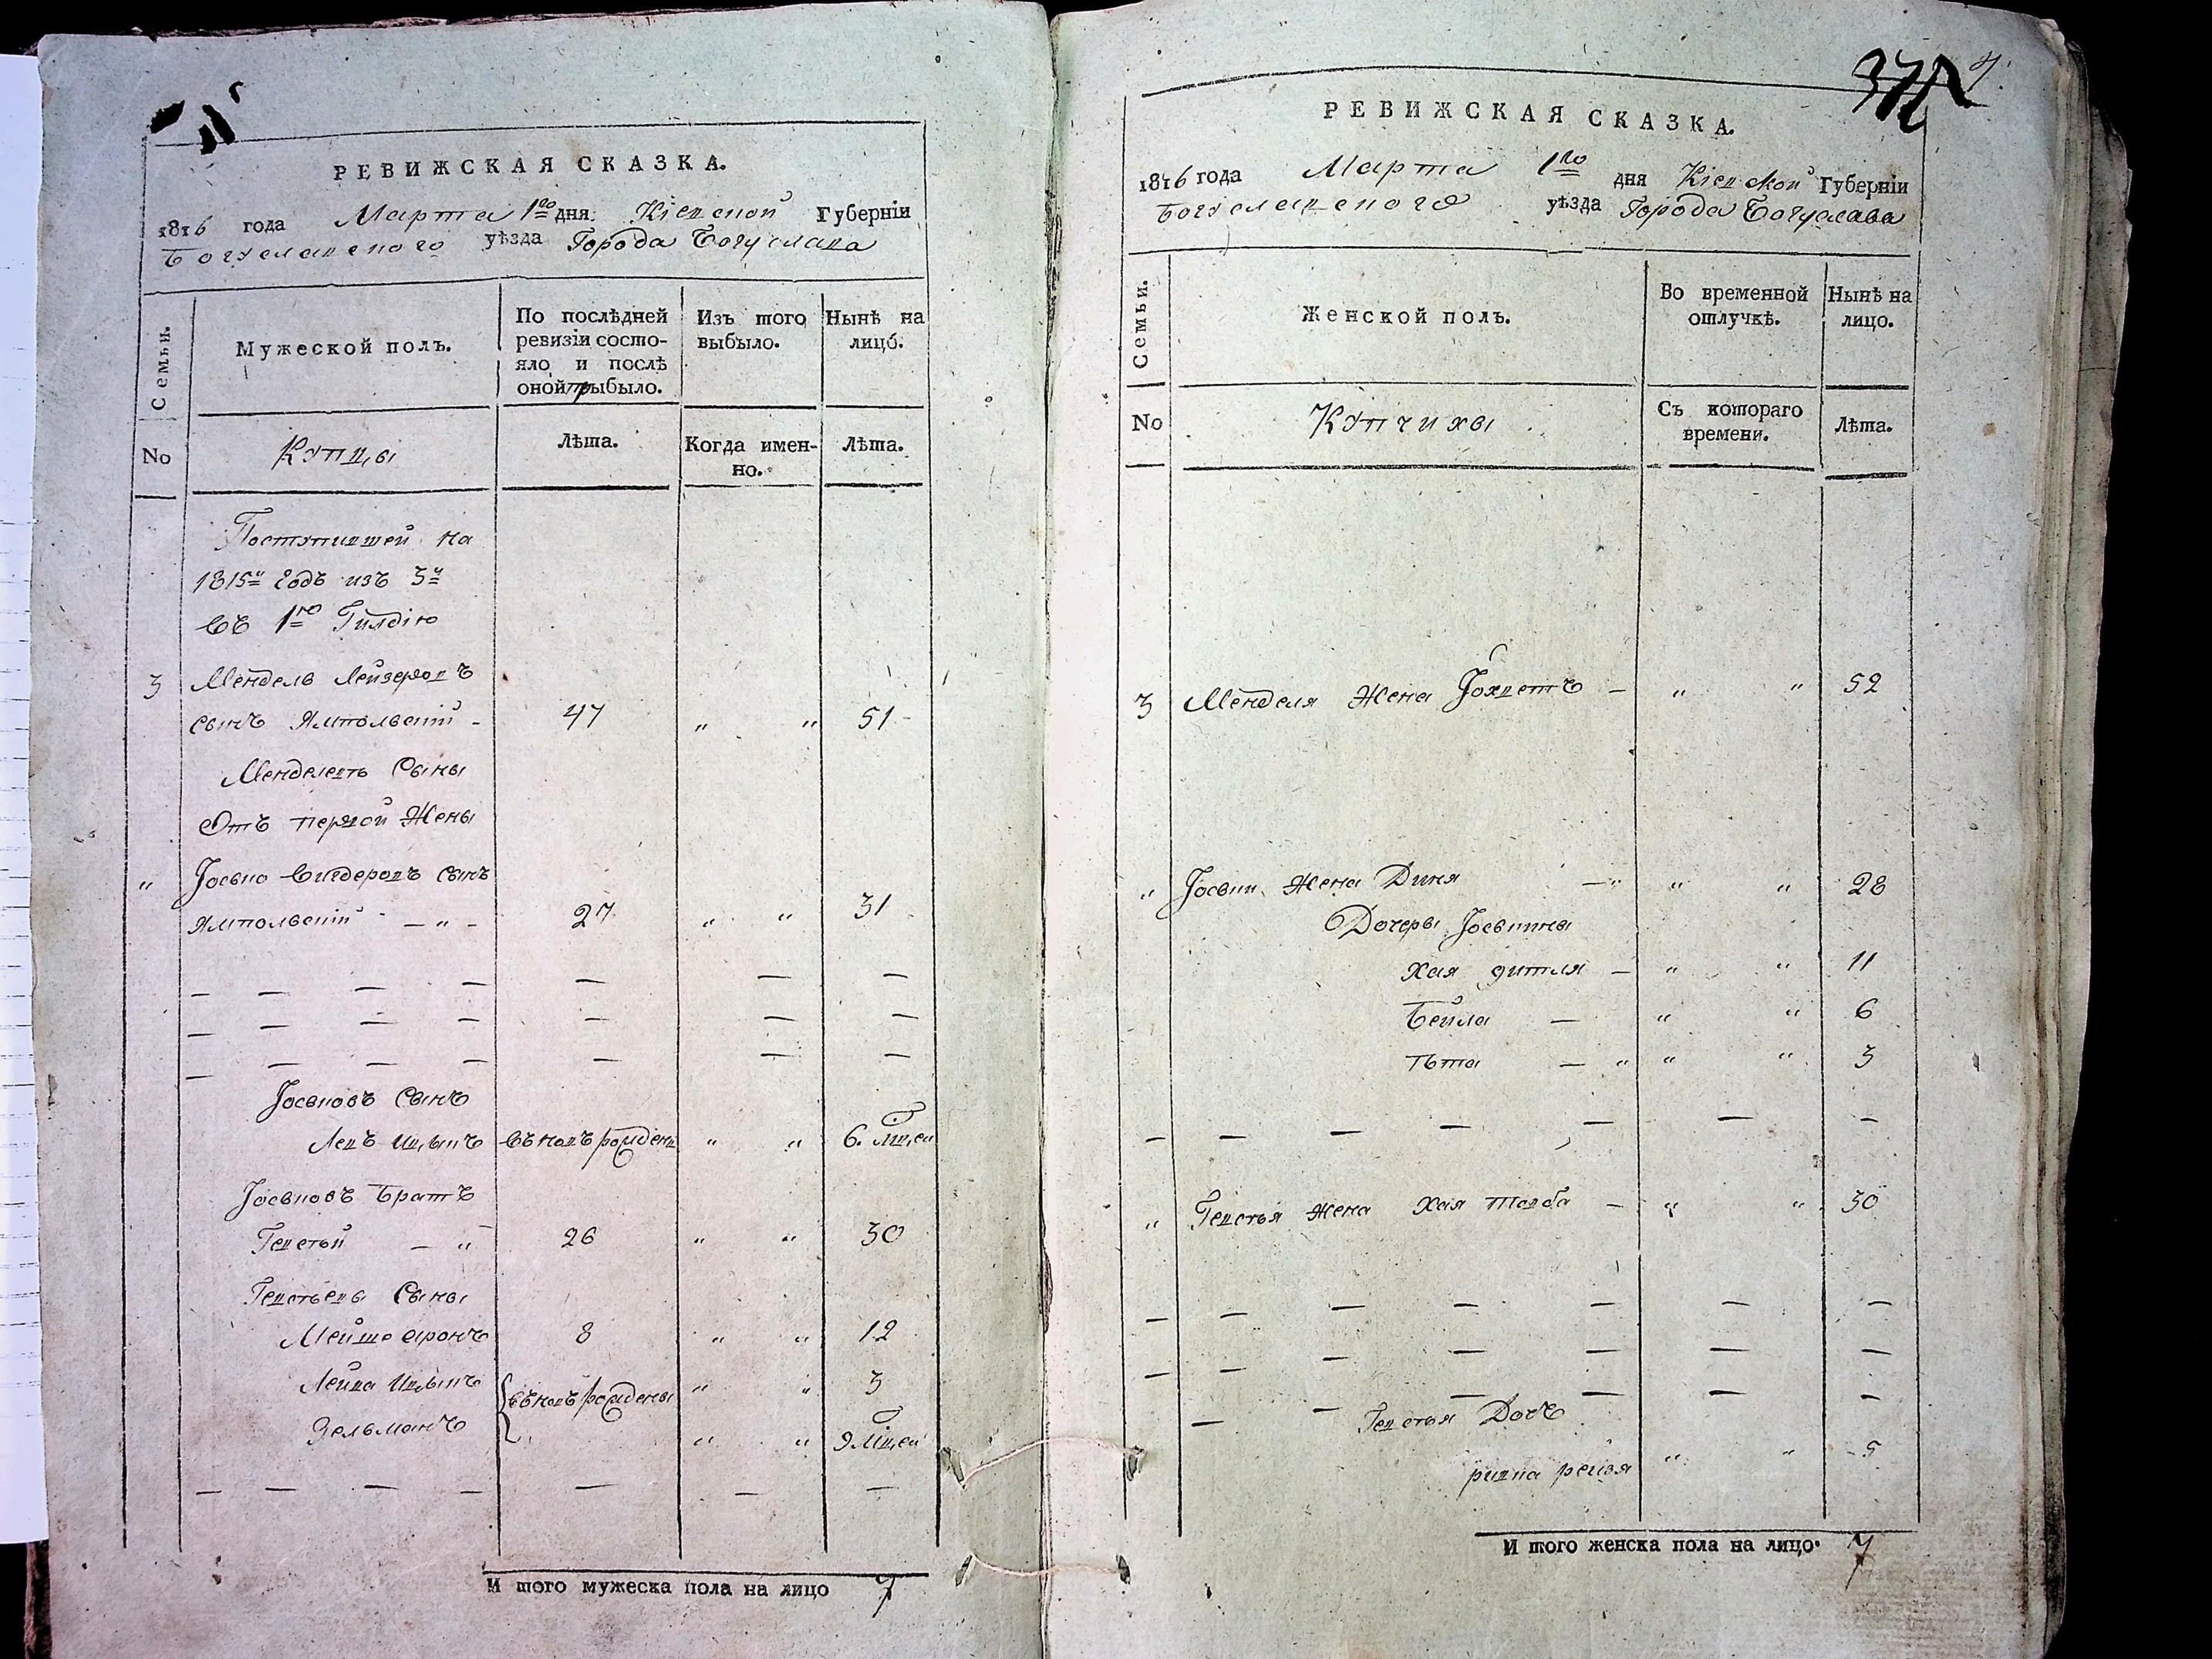 РЕВИЖСКАЯ СКАЗКА.
1816 года Марта 1го дня Кіевской Губерніи
Богуславского уѣзда Города Богуслава
Семьи.
Мужеской полъ.
По послѣдней ревизіи состо-
яло и послѣ
оной прыбыло.
Изъ того
выбыло.
Нынѣ на
лицо.
No
Купцы
Лѣта.
Когда имен-
но.
Лѣта.
Поступившей на
1815й Годъ изъ 3й
въ 1ю Гилдію
3 Мендель Лейзеровъ
сынъ Ямпольскій - 47 " " 51
Менделеть Сыны
Отъ первой Жены
" Іосько Сигдеровъ сынъ
Ямпольскій — " - 27 " " 31
Іоськовъ Сынъ
Левъ Ицыкъ въ новъ рожденъ " " 6. Мцей
Іоськовъ Братъ
Гевстей — " 26 " " 30
Сыны
Мейше аронъ 8 " " 12
Лейпа Ицыкъ въ новъ рождены " " 3
Зельманъ " " 9 Мцей
И того мужеска пола на лицо 7
7.
РЕВИЖСКАЯ СКАЗКА.
1816 года Марта 1го дня Кіевской Губерніи
Богуславского уѣзда Города Богуслава
Семьи.
Женской полъ.
Во временной
отлучкѣ.
Нынѣ на
лицо.
No
Купчихи
Съ котораго
времени.
Лѣта.
3 Менделя Жена Іохветъ — " " 52
" Іоськи Жена Диня — " " 28
Дочеры Іоськины
Хая гитля — " " 11
Бейла — " " 6
— " " " 3
" Жена Хая — " " 30
Дочъ
ривка рейзя " " 5
И того женска пола на лицо. 7